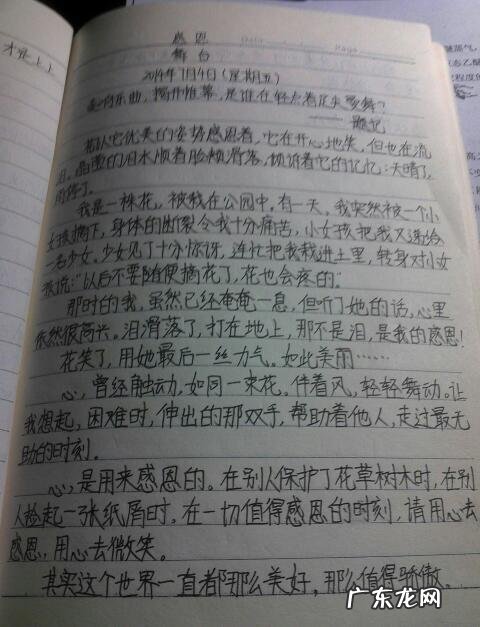 感恩
舞台
2014年7月4日(星期五)
奏响乐曲,揭开帷幕,是谁在轻点着足尖要舞?
——题记
花以它优美的姿势感恩着,它在开心地笑,但也在流
泪,晶莹的泪水顺着脸颊滑落,倾诉着它的记忆:天晴了,
雨停了。
我是一株花,被栽在公园中。有一天,我突然被一个小
女孩摘下,身体的断裂令我十分痛苦,小女孩把我又递给
一名少女,少女见了十分惊讶,连忙把我栽进土里,转身对小女
孩说:"以后不要随便摘花了,花也会疼的"
那时的我,虽然已经奄奄一息,但听了她的话,心里
依然很高兴。泪滑落了,打在地上,那不是泪,是我的感恩!
花笑了,用她最后一丝力气。如此美丽……
心,曾经触动,如同一束花。伴着风,轻轻舞动。让
我想起,困难时,伸出的那双手,帮助着他人,走过最无
助的时刻。
心,是用来感恩的。在别人保护了花草树木时,在别
人捡起一张纸屑时,在一切值得感恩的时刻,请用心去
感恩,用心去微笑。
其实这个世界一直都那么美好,那么值得骄傲。
广东龙网